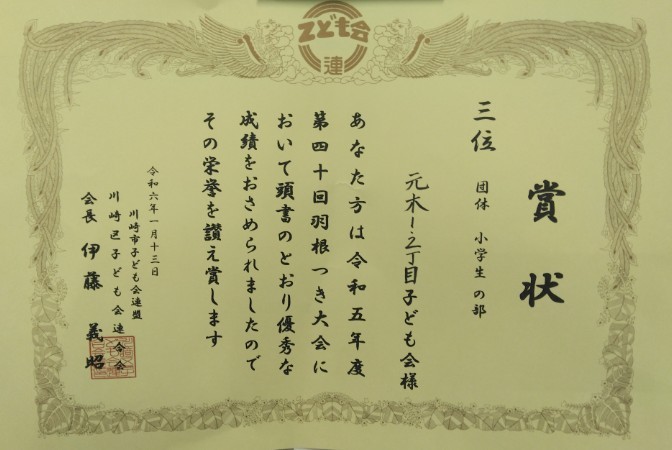 こども会
連
賞状
三位 団体 小学生の部
元木1・2丁目子ども会様
あなた方は令和五年度
第四十回羽根つき大会に
おいて頭書のとおり優秀な
成績をおさめられましたので
その栄挙を讃え賞します
令和六年一月十三日
川崎市子ども会連盟
川崎区子ども会連合会
会長 伊藤 義昭